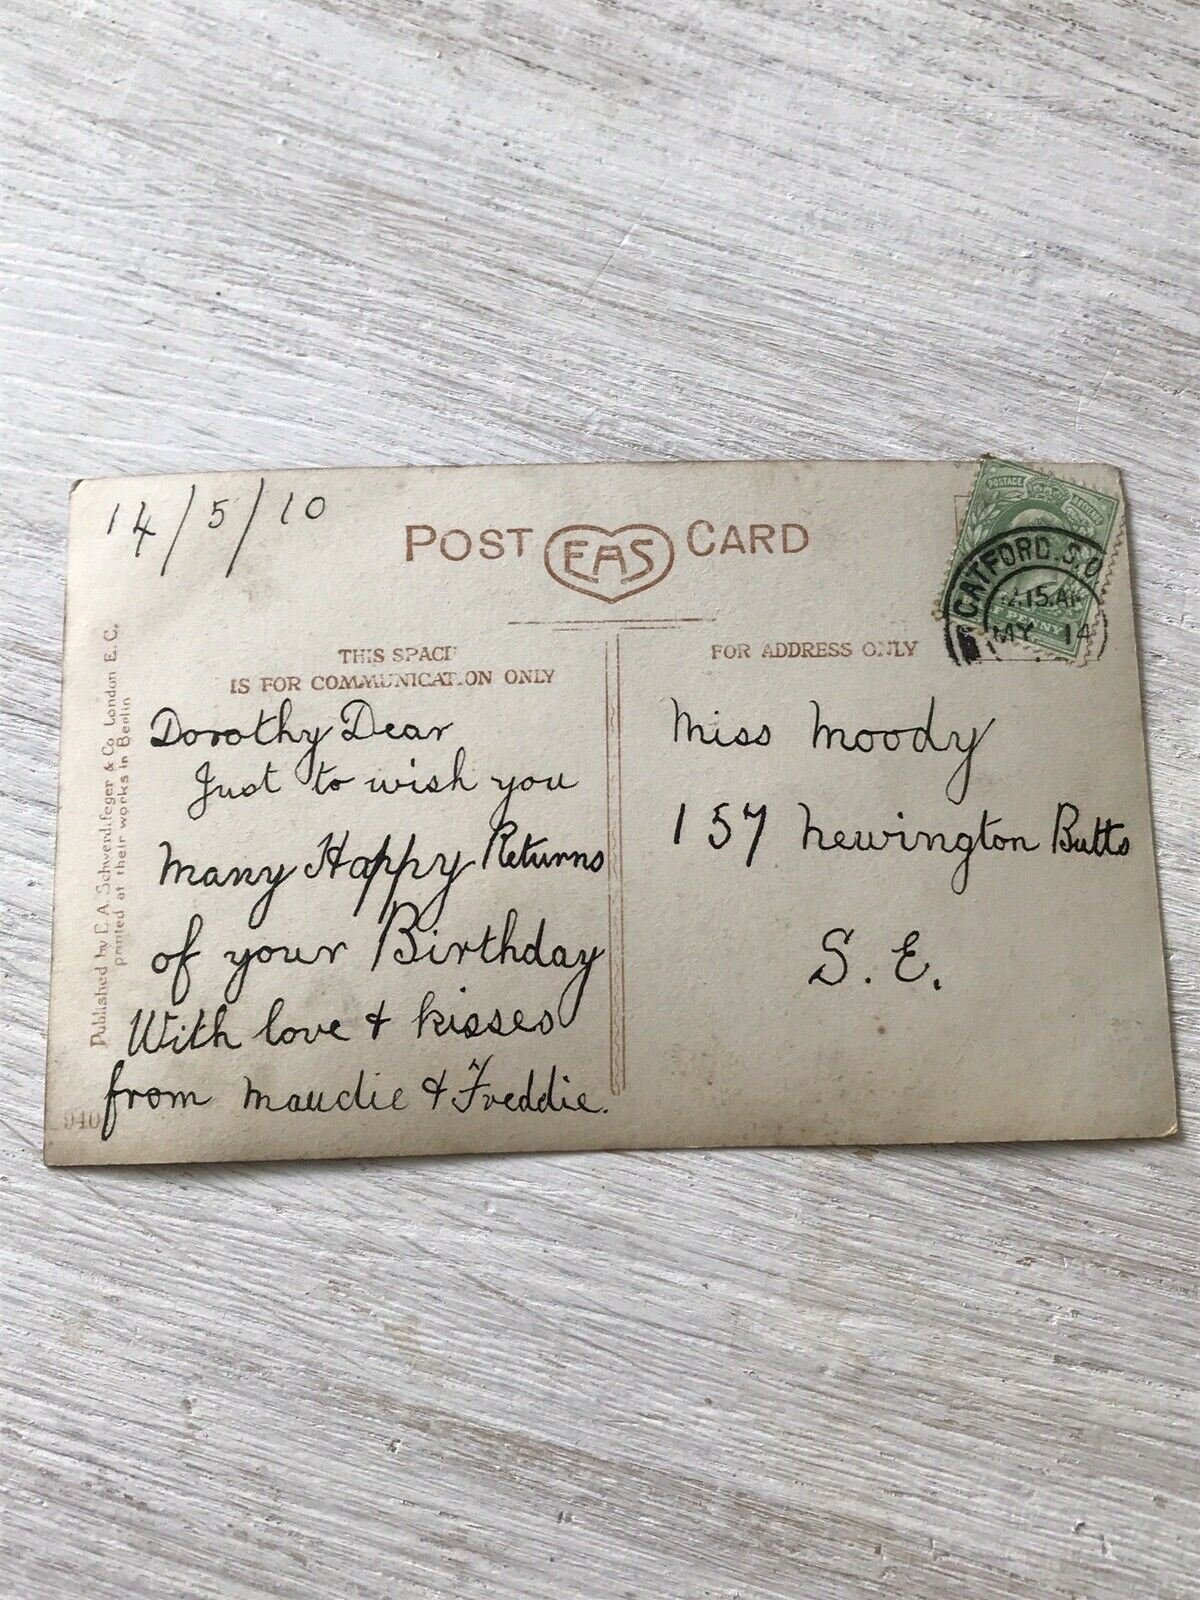 14/5/10
POST EAS CARD
CATFORD. S.O
.15.AM
MY 14
POSTAGE REVENUE
PENNY
THIS SPACE
IS FOR COMMUNICATION ONLY
FOR ADDRESS ONLY
Published by E. A. Schwerdtfeger & Co. London E. C.
printed at their works in Berlin
Dorothy Dear
Just to wish you
Many Happy Returns
of your Birthday
With love & kisses
from Maudie & Freddie.
Miss Moody
157 Newington Butts
S. E.
940